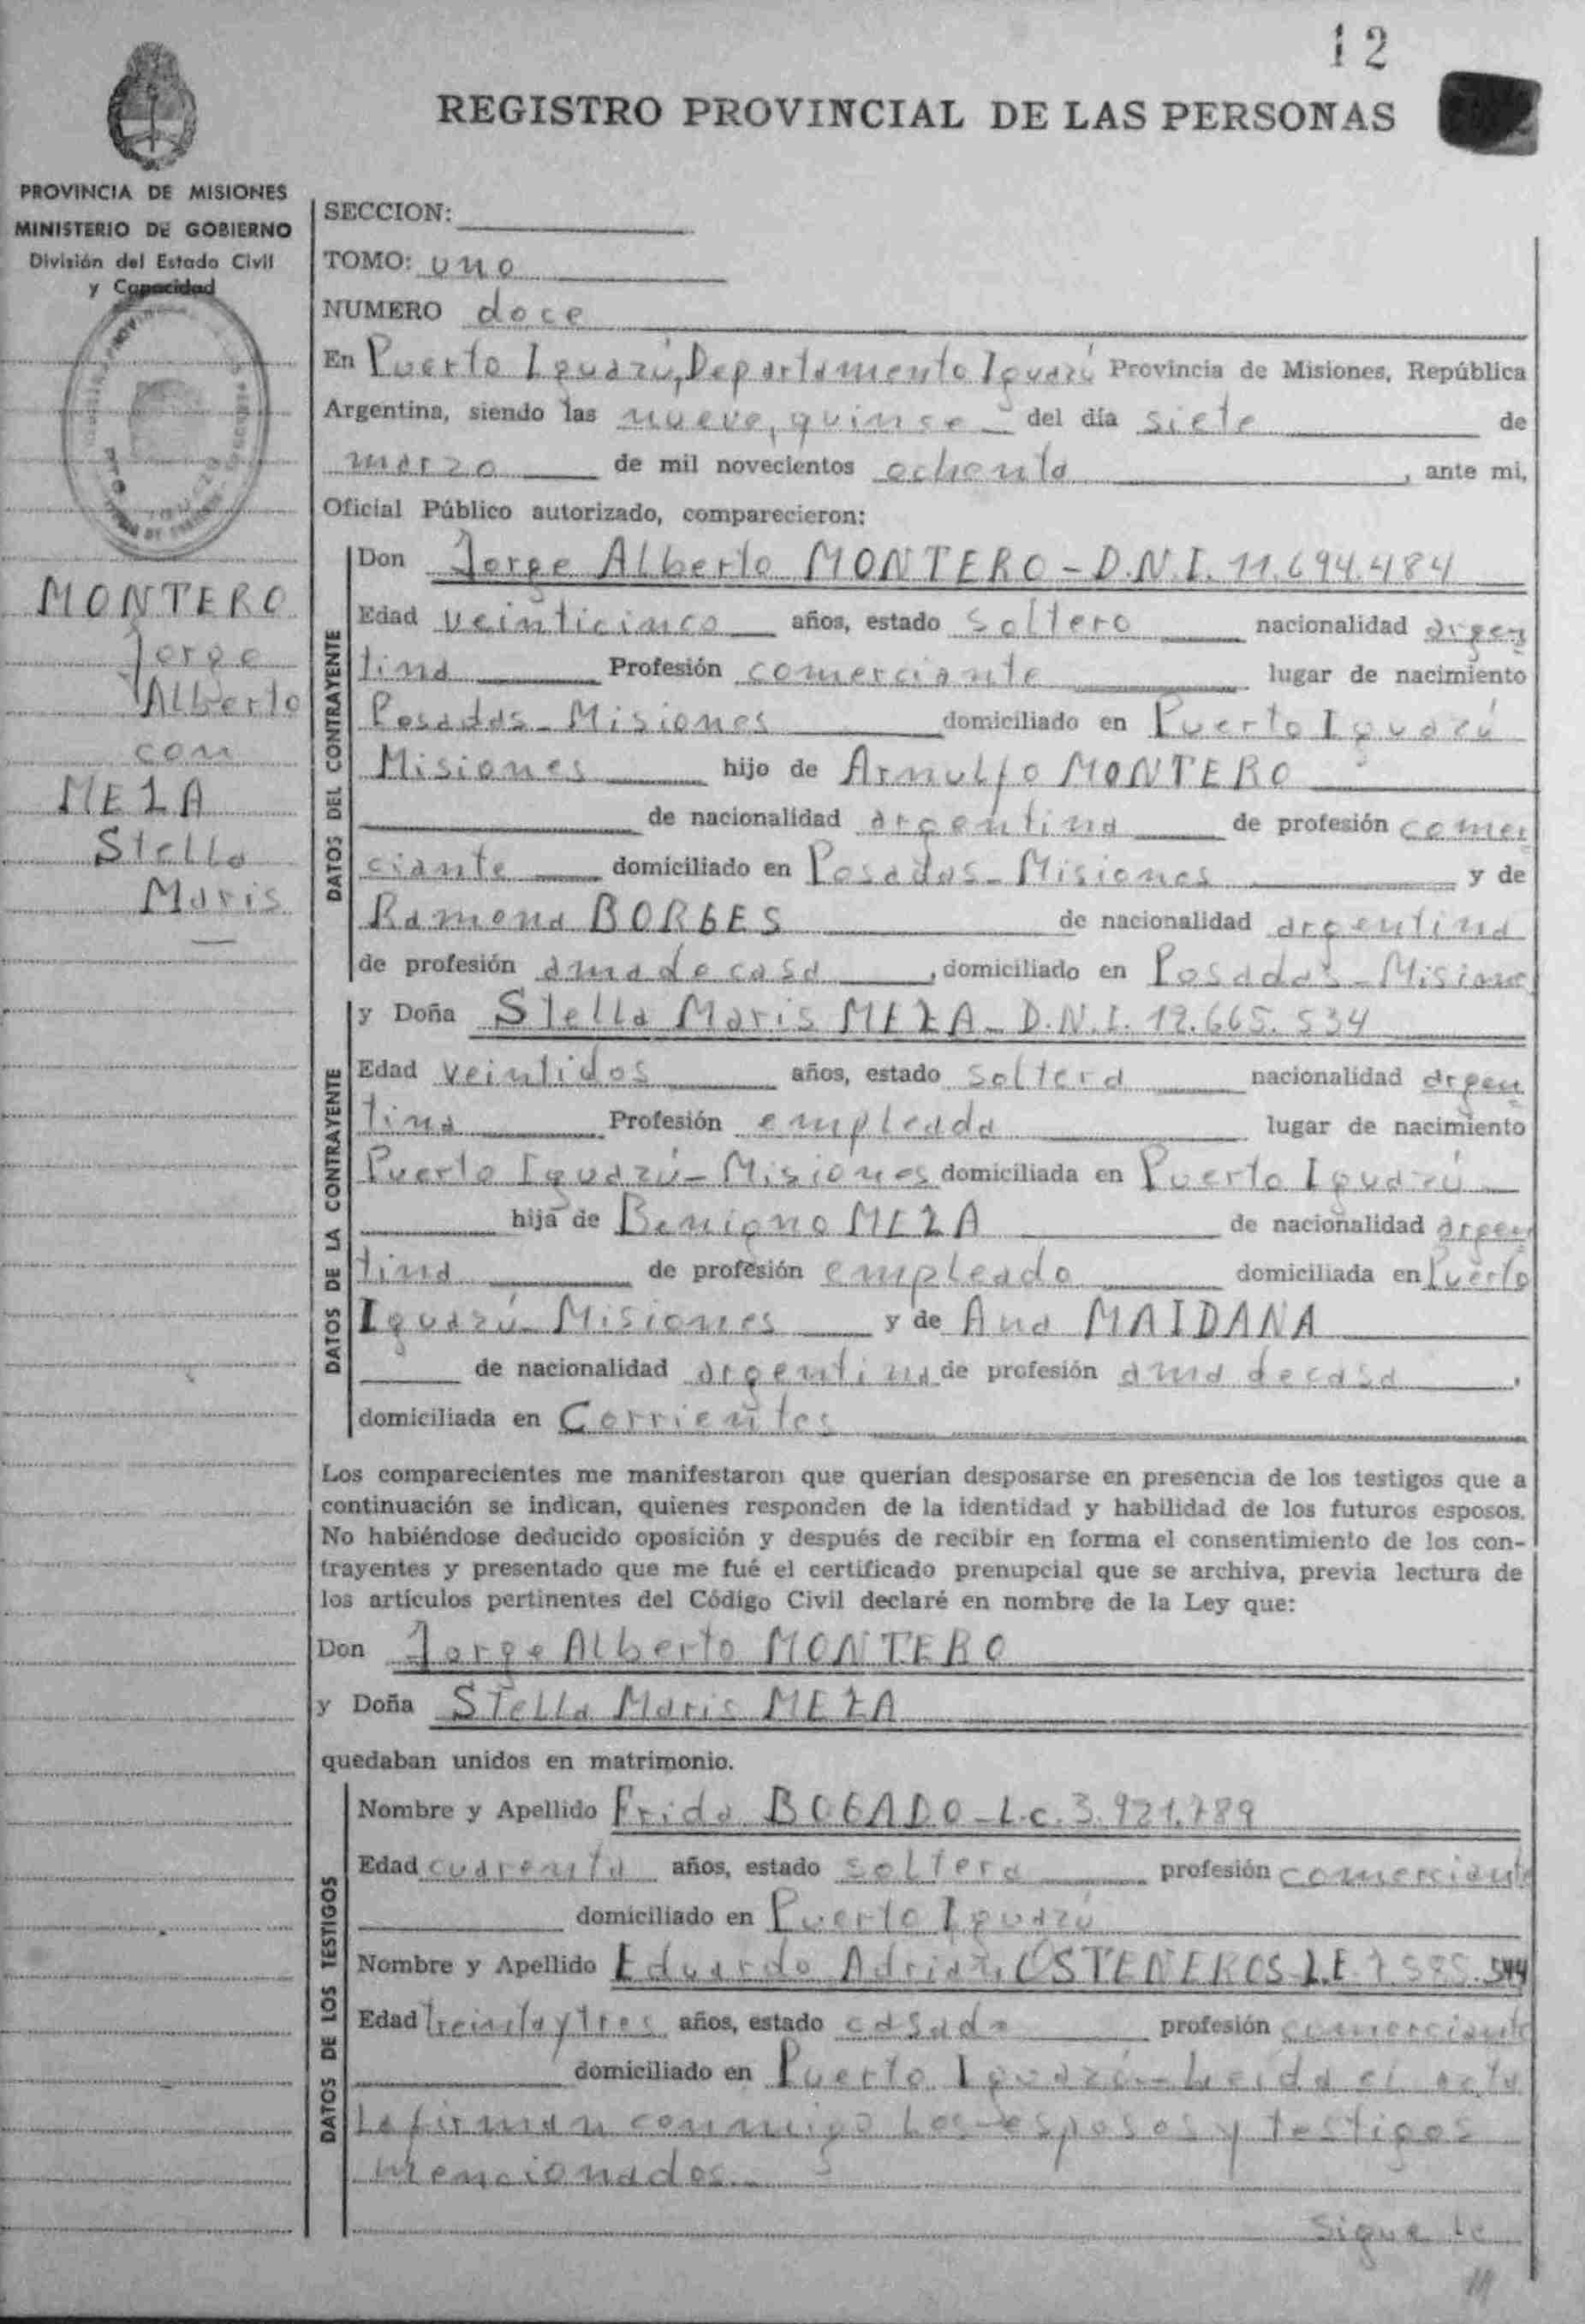 12
REGISTRO PROVINCIAL DE LAS PERSONAS
PROVINCIA DE MISIONES
MINISTERIO DE GOBIERNO
División del Estado Civil
y Capacidad
MONTERO
Jorge
Alberto
con
MEZA
Stella
Maris
SECCION:
TOMO: uno
NUMERO doce
En Puerto Iguazú, Departamento Iguazú Provincia de Misiones, República
Argentina, siendo las nueve, quince del día siete de
marzo de mil novecientos ochenta, ante mi,
Oficial Público autorizado, comparecieron:
DATOS DEL CONTRAYENTE
Don Jorge Alberto MONTERO - D.N.I. 11.694.484
Edad veinticinco años, estado soltero nacionalidad argen
tina Profesión comerciante lugar de nacimiento
Posadas - Misiones domiciliado en Puerto Iguazú
Misiones hijo de Arnulfo MONTERO
de nacionalidad argentina de profesión comer
ciante domiciliado en Posadas - Misiones y de
Ramona BORGES de nacionalidad argentina
de profesión ama de casa, domiciliado en Posadas - Misiones
DATOS DE LA CONTRAYENTE
y Doña Stella Maris MEZA - D.N.I. 12.665.534
Edad veintidos años, estado soltera nacionalidad argen
tina Profesión empleada lugar de nacimiento
Puerto Iguazú - Misiones domiciliada en Puerto Iguazú -
hija de Benigno MEZA de nacionalidad argen
tina de profesión empleado domiciliada en Puerto
Iguazú - Misiones y de Ana MAIDANA
de nacionalidad argentina de profesión ama de casa,
domiciliada en Corrientes
Los comparecientes me manifestaron que querían desposarse en presencia de los testigos que a
continuación se indican, quienes responden de la identidad y habilidad de los futuros esposos.
No habiéndose deducido oposición y después de recibir en forma el consentimiento de los con-
trayentes y presentado que me fué el certificado prenupcial que se archiva, previa lectura de
los artículos pertinentes del Código Civil declaré en nombre de la Ley que:
Don Jorge Alberto MONTERO
y Doña Stella Maris MEZA
quedaban unidos en matrimonio.
DATOS DE LOS TESTIGOS
Nombre y Apellido Frida BOGADO - L.C. 3.921.789
Edad cuarenta años, estado soltera profesión comerciante
domiciliado en Puerto Iguazú
Nombre y Apellido Eduardo Adrian OSTENEROS L.E
Edad treinta y tres años, estado casado profesión comerciante
domiciliado en Puerto Iguazú - Leida el acta
La firman conmigo los esposos y testigos
mencionados -
Sigue la